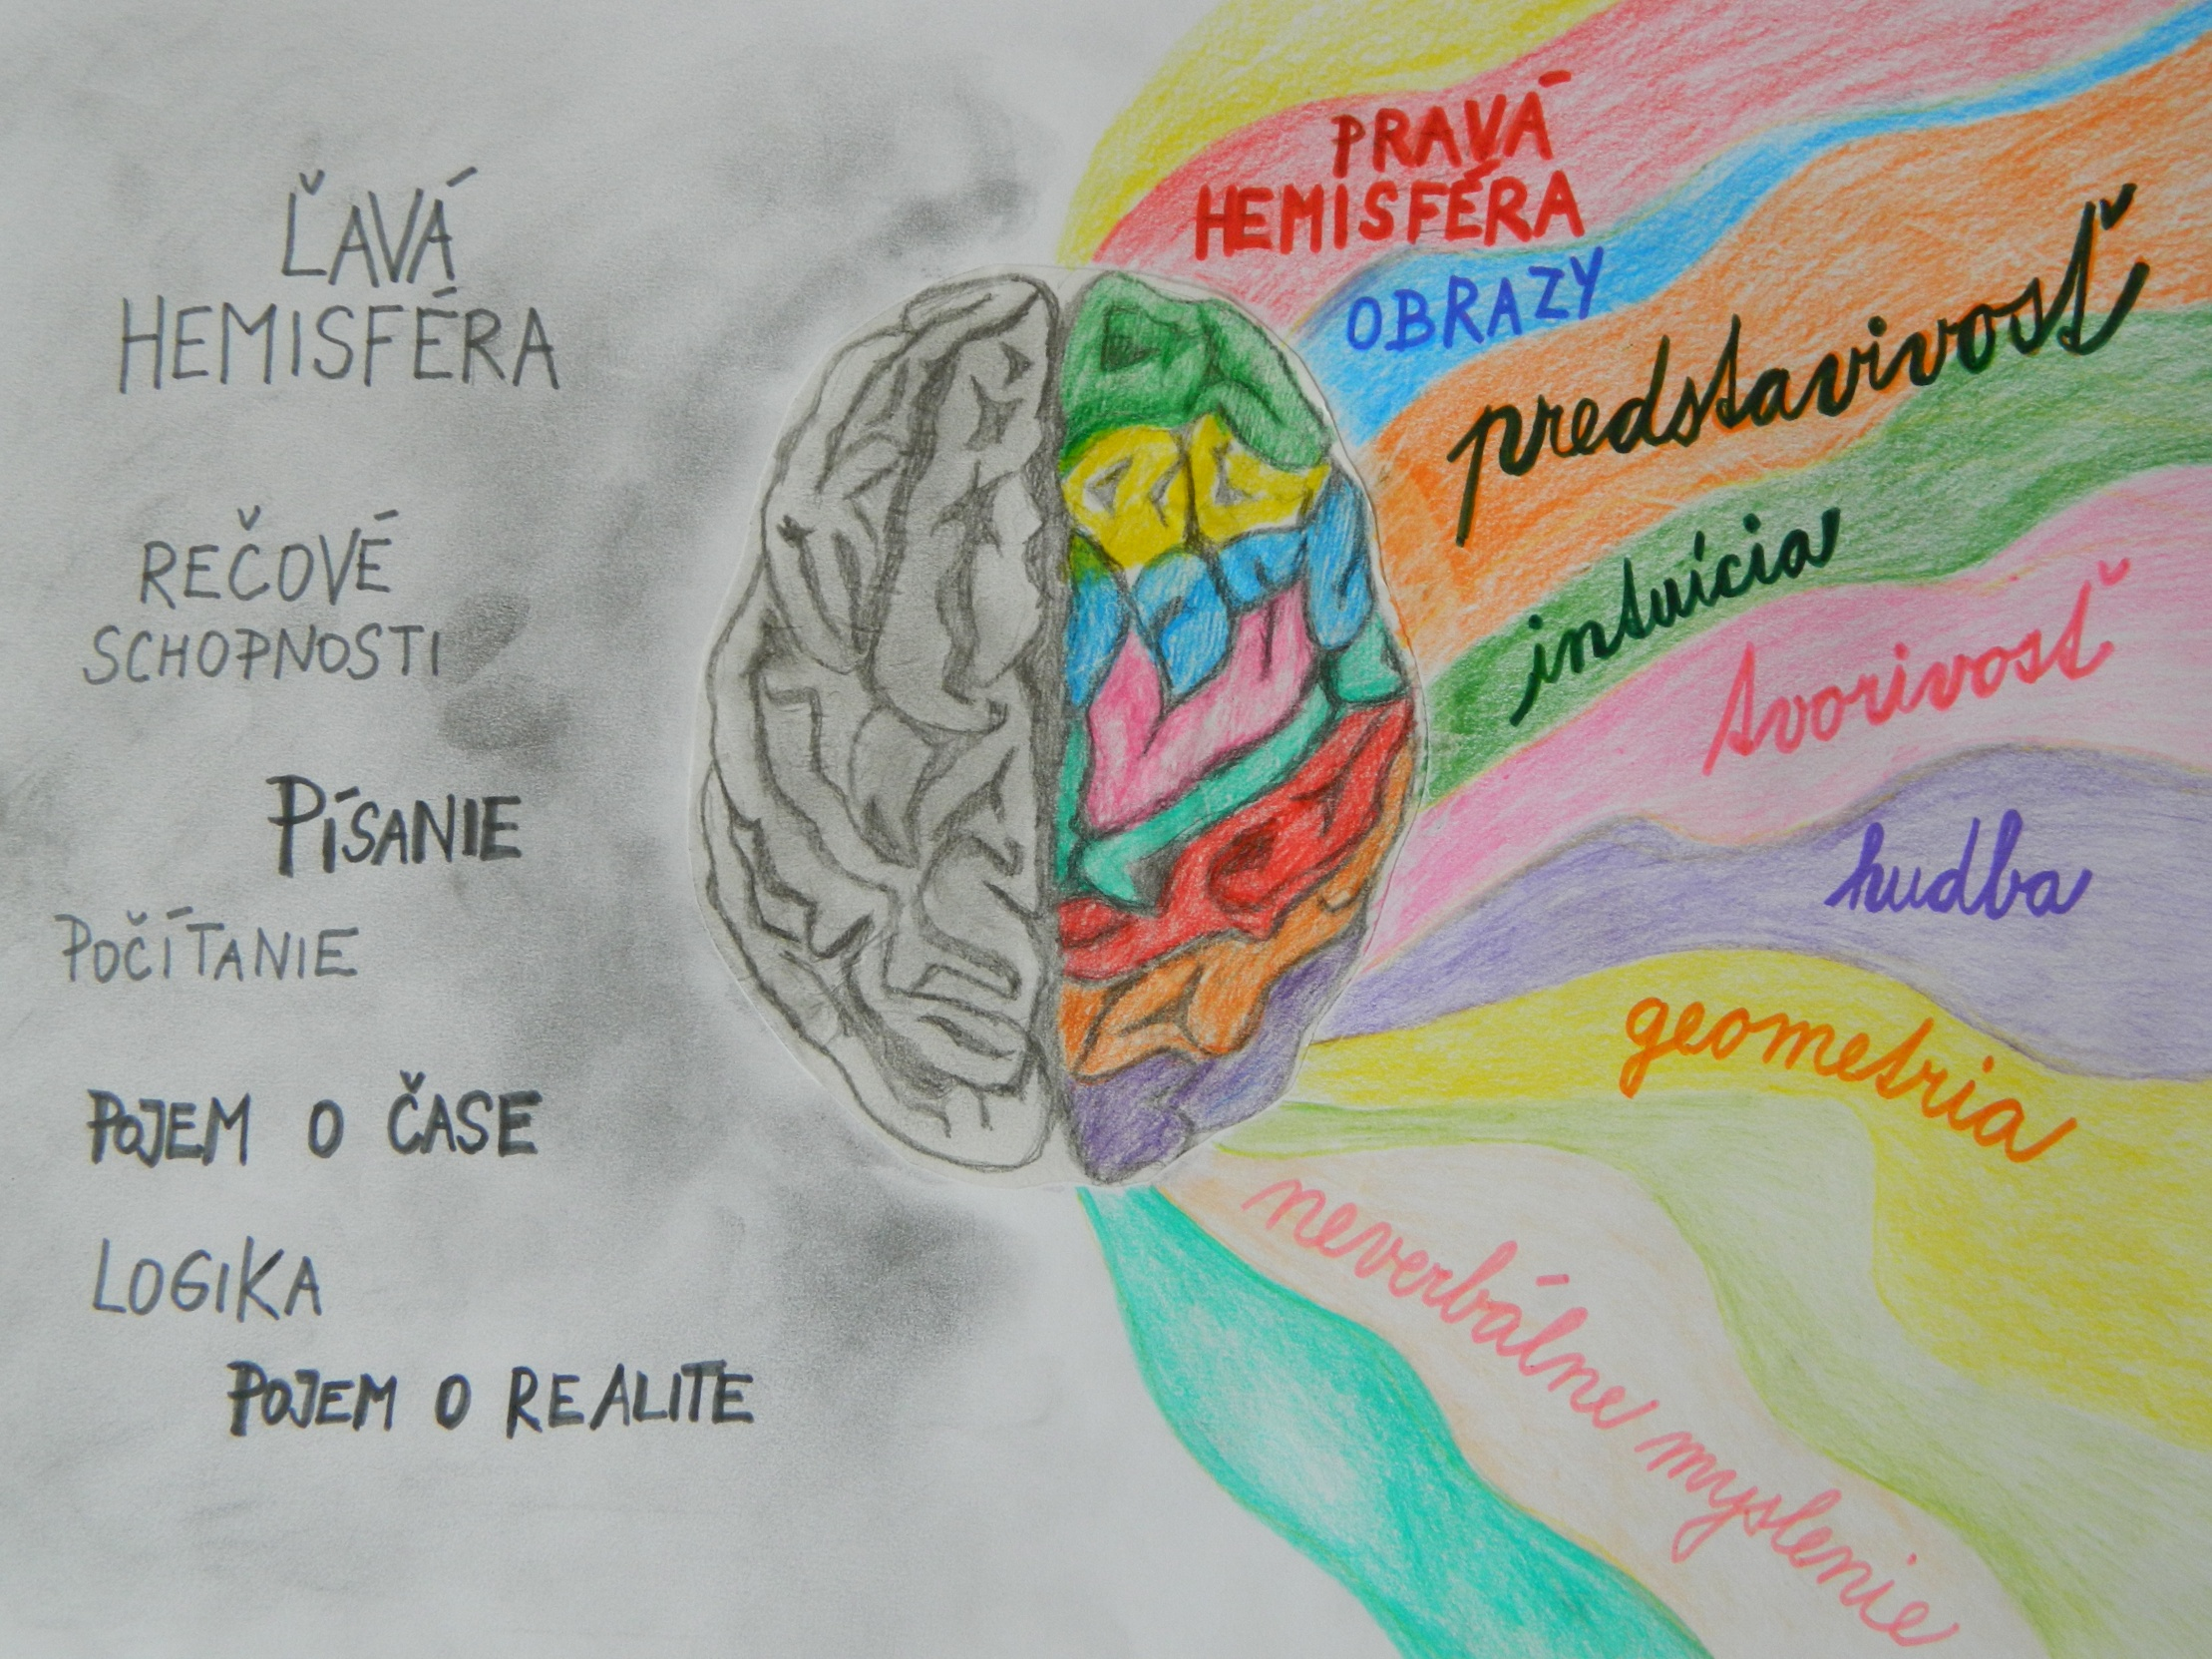 ĽAVÁ
HEMISFÉRA
REČOVÉ
SCHOPNOSTI
PÍSANIE
POČÍTANIE
POJEM O ČASE
LOGIKA
POJEM O REALITE
PRAVÁ
HEMISFÉRA
OBRAZY
predstavivosť
intuícia
tvorivosť
hudba
geometria
neverbálne myslenie